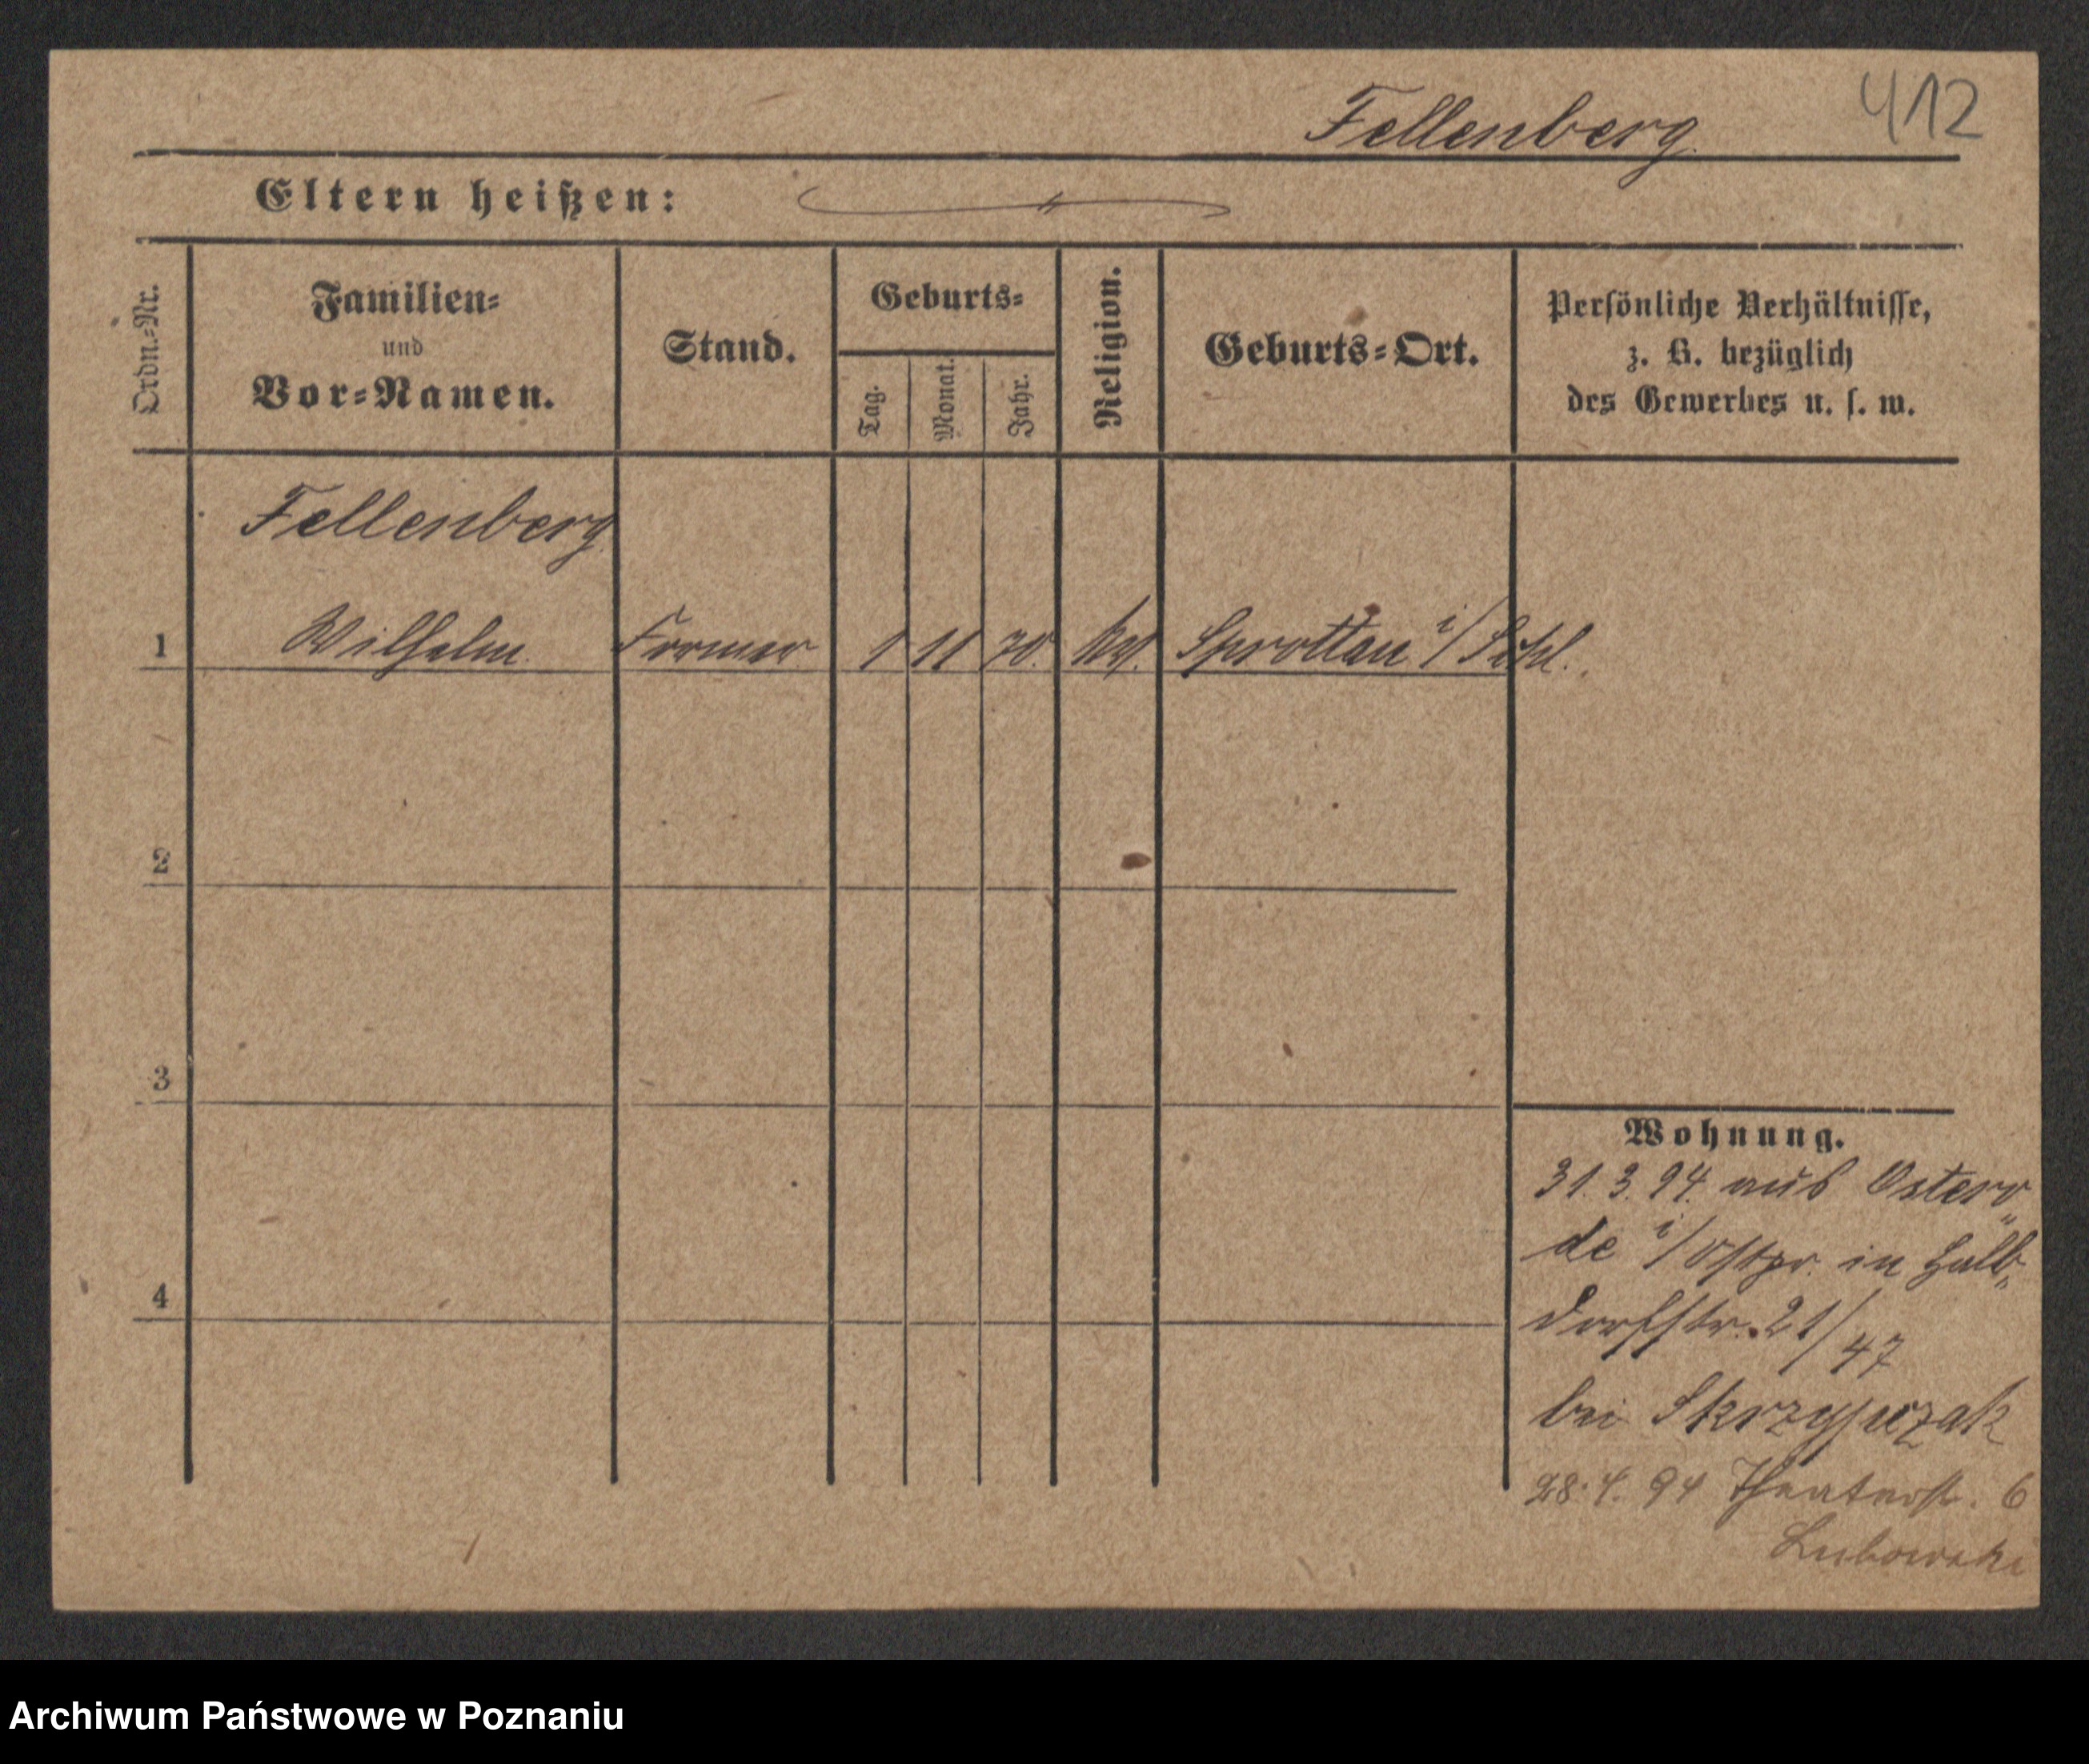 412
Fellenberg.
Eltern heißen:
Ordn.=Nr.
Familien=
und
Vor=Namen.
Stand.
Geburts=
Tag.
Monat.
Jahr.
Religion.
Geburts=Ort.
Persönliche Verhältnisse,
z. B. bezüglich
des Gewerbes u. s. w.
Fellenberg
1 Wilhelm. Former 1 11 70. Sprottau i/Schl.
2
3
4
Wohnung.
31. 3. 94. aus Ostero
de i/Ostpr. in Halb„
dorfstr. 21/47
bei Skrzypczak
28. 4. 94 Theaterstr. 6
Lubowski
Archiwum Państwowe w Poznaniu